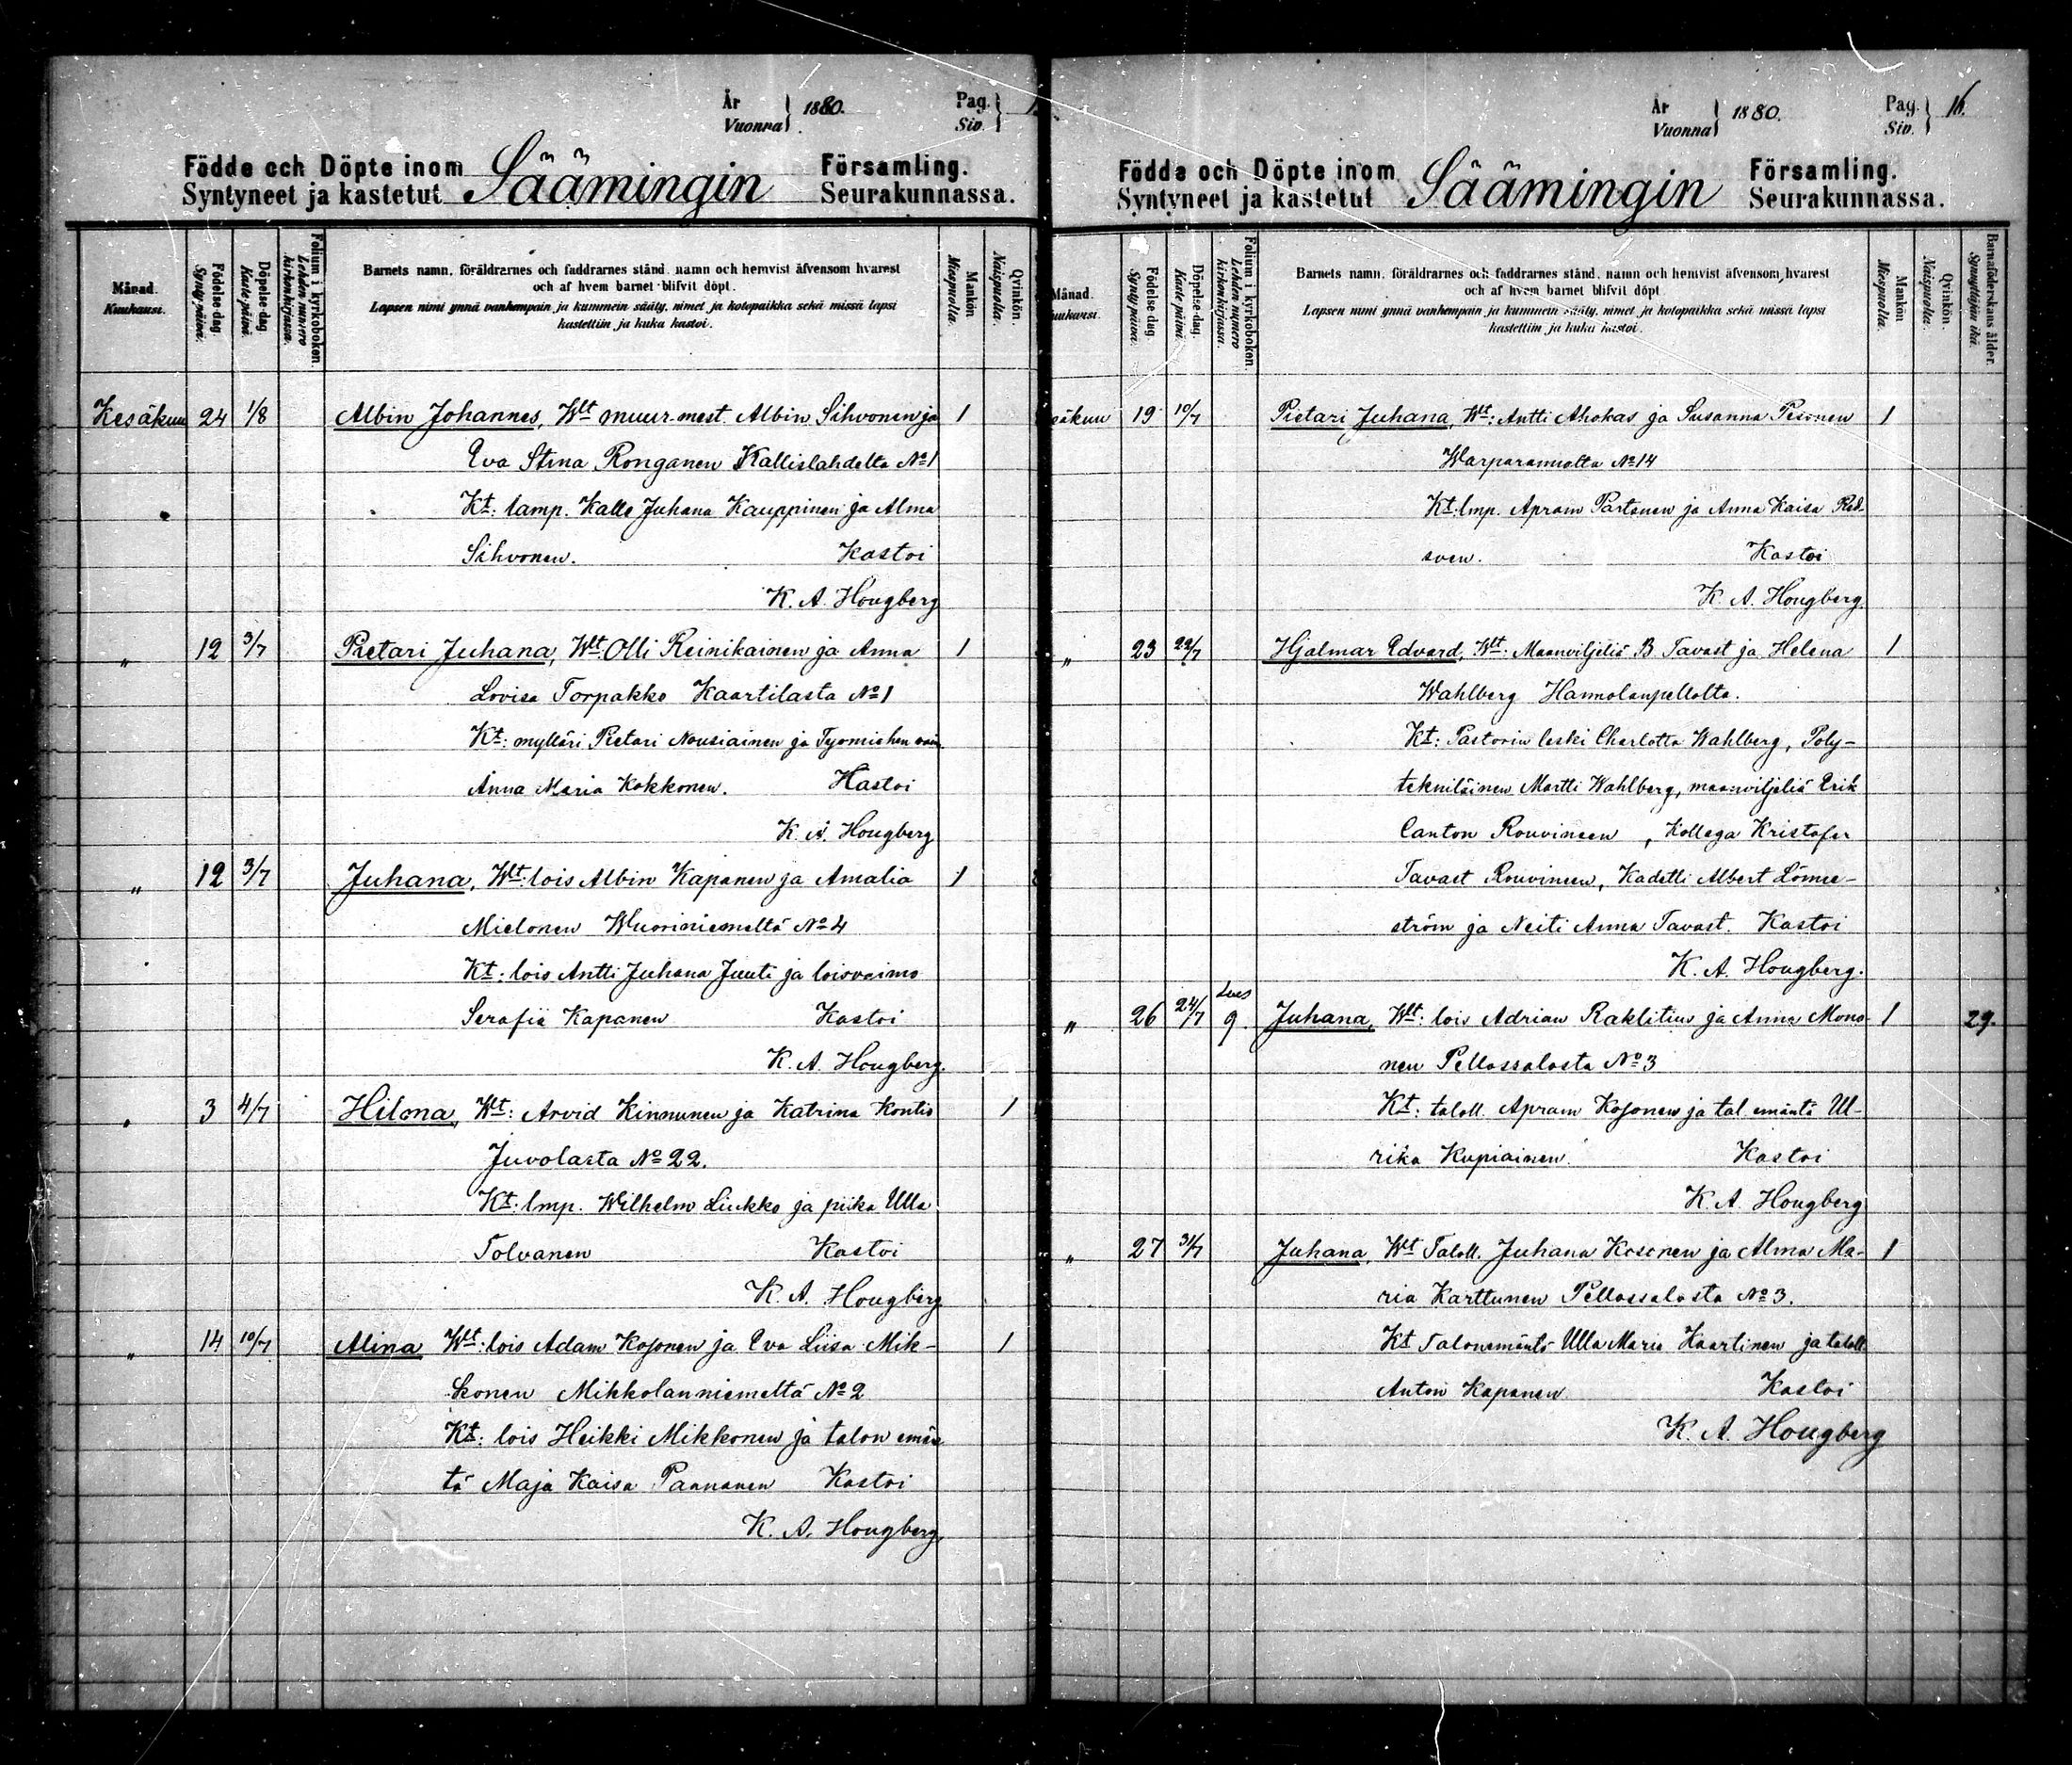 År
Vuonna } 1880.
Pag.
Siv. }
Födde och Döpte inom
Syntyneet ja kastetut Säämingin
Församling.
Seurakunnassa.
Månad.
Kuukausi.
Födelse dag.
Syntypäivä.
Döpelse dag.
Kastepäivä.
Folium i kyrkoboken.
Lehden numero
kirkonkirjassa.
Barnets namn, föräldrarnes och faddrarnes stånd, namn och hemvist äfvensom hvarest
och af hvem barnet blifvit döpt.
Lapsen nimi ynnä vanhempain ja kummein sääty, nimet ja kotopaikka sekä missä lapsi
kastettiin ja kuka kastoi.
Mankön
Miespuolia.
Qvinkön.
Naispuolia.
Kesäkuu 24 1/8 Albin Johannes, Wlt muur.mest. Albin Sihvonen ja 1
Eva Stina Ronganen Kallislahdelta No 1
Kt: lamp. Kalle Juhana Kauppinen ja Alma
Sihvonen. Kastoi
K. A. Hougberg
" 12 3/7 Pietari Juhana, Wlt: Olli Reinikainen ja Anna 1
Lovisa Torpakko Kaartilasta No 1
Kt: mylläri Pietari Nousiainen ja Työmiehen vaim.
Anna Maria Kokkonen. Kastoi
K. A. Hougberg
" 12 3/7 Juhana, Wlt: lois Albin Kapanen ja Amalia 1
Mielonen Wuoriniemeltä No 4
Kt: lois Antti Juhana Juuti ja loisvaimo
Serafia Kapanen Kastoi
K. A. Hougberg.
" 3 4/7 Hilma, Wt: Arvid Kinnunen ja Katrina Kontio 1
Juvolasta No 22.
Kt: lmp. Wilhelm Liukko ja piika Ulla
Tolvanen Kastoi
K. A. Hougberg
" 14 10/7 Alina Wlt: lois Adam Kosonen ja Eva Liisa Mik- 1
konen Mikkolanniemeltä No 2
Kt: lois Heikki Mikkonen ja talon emän
tä Maja Kaisa Pannanen Kastoi
K. A. Hougberg
År
Vuonna } 1880.
Pag.
Siv. } 16.
Födde och Döpte inom
Syntyneet ja kastetut Säämingin
Församling.
Seurakunnassa.
Månad.
Kuukausi.
Födelse dag.
Syntypäivä.
Döpelse dag.
Kastepäivä.
Folium i kyrkoboken.
Lehden numero
kirkonkirjassa.
Barnets namn, föräldrarnes och faddrarnes stånd, namn och hemvist äfvensom hvarest
och af hvem barnet blifvit döpt
Lapsen nimi ynnä vanhempain ja kummein sääty, nimet ja kotopaikka sekä missä lapsi
kastettiin ja kuka kastoi.
Mankön
Miespuolia.
Qvinkön.
Naispuolia.
Barnaföderskans ålder.
Synnyttäjän ikä.
säkuu 19 10/7 Pietari Juhana, Wlt: Antti Ahokas ja Susanna Pesonen 1
Warparannolta No 14
Kt: lmp. Apram Partanen ja Anna Kaisa Red-
sven. Kastoi
K. A. Hougberg.
" 23 22/7 Hjalmar Edvard, Wlt: Maanviljeliä B. Tavast ja Helena 1
Wahlberg Hannolanpellolta.
Kt: Pastorin leski Charlotta Wahlberg, Poly-
tekniläinen Martti Wahlberg, maanviljeliä Erik
Canton Rouvineen, Kollega Kristofer
Tavast Rouvineen, Kadetti Albert Lönne-
ström ja Neiti Anna Tavast. Kastoi
K. A. Hougberg.
" 26 24/7 9. Juhana, Wlt: lois Adrian Raklitius ja Anna Mono- 1 29.
nen Pellossalosta No 3
Kt: taloll. Apram Kosonen ja tal. emäntä Ul-
rika Kupiainen. Kastoi
K. A. Hougberg
" 27 31/7 Juhana, Wlt Taloll. Juhana Kosonen ja Alma Ma- 1
ria Karttunen Pellossalosta No 3.
Kt Talonemäntä Ulla Maria Kaartinen ja taloll.
Anton Kapanen. Kastoi
K. A. Hougberg